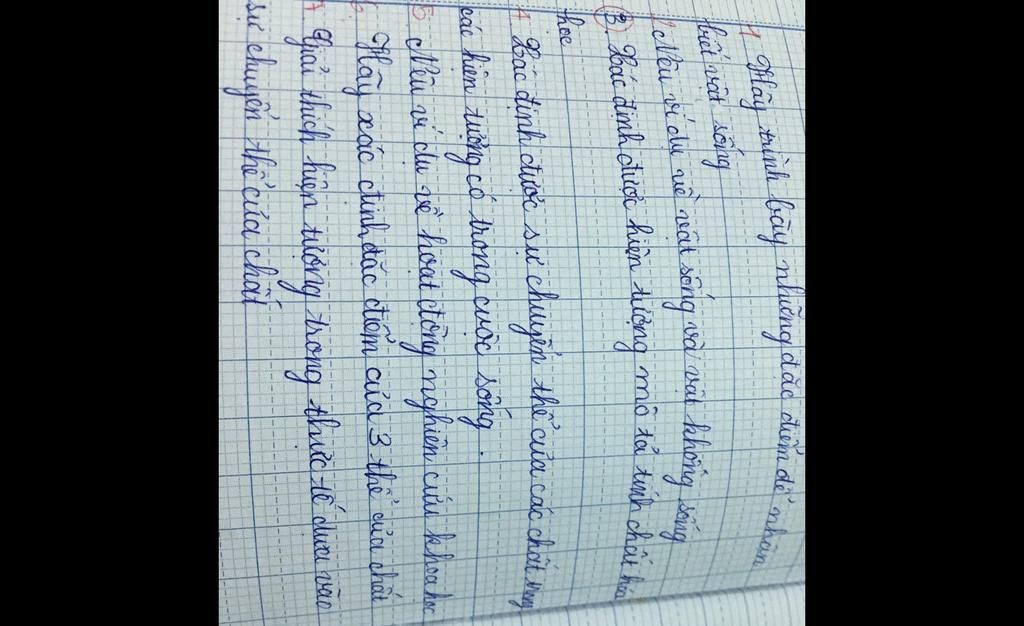 1 Hãy trình bày những đặc điểm để nhận
biết vật sống
2 Nêu ví dụ về vật sống và vật không sống
3. Xác định được hiện tượng mô tả tính chất hóa
học
4 Xác định được sự chuyển thể của các chất trong
các hiện tượng có trong cuộc sống.
5 Nêu ví dụ về hoạt động nghiên cứu khoa học
6 Hãy xác định đặc đểm của 3 thể của chất
7 Giải thích hiện tượng trong thực tế dựa vào
sự chuyển thể của chất